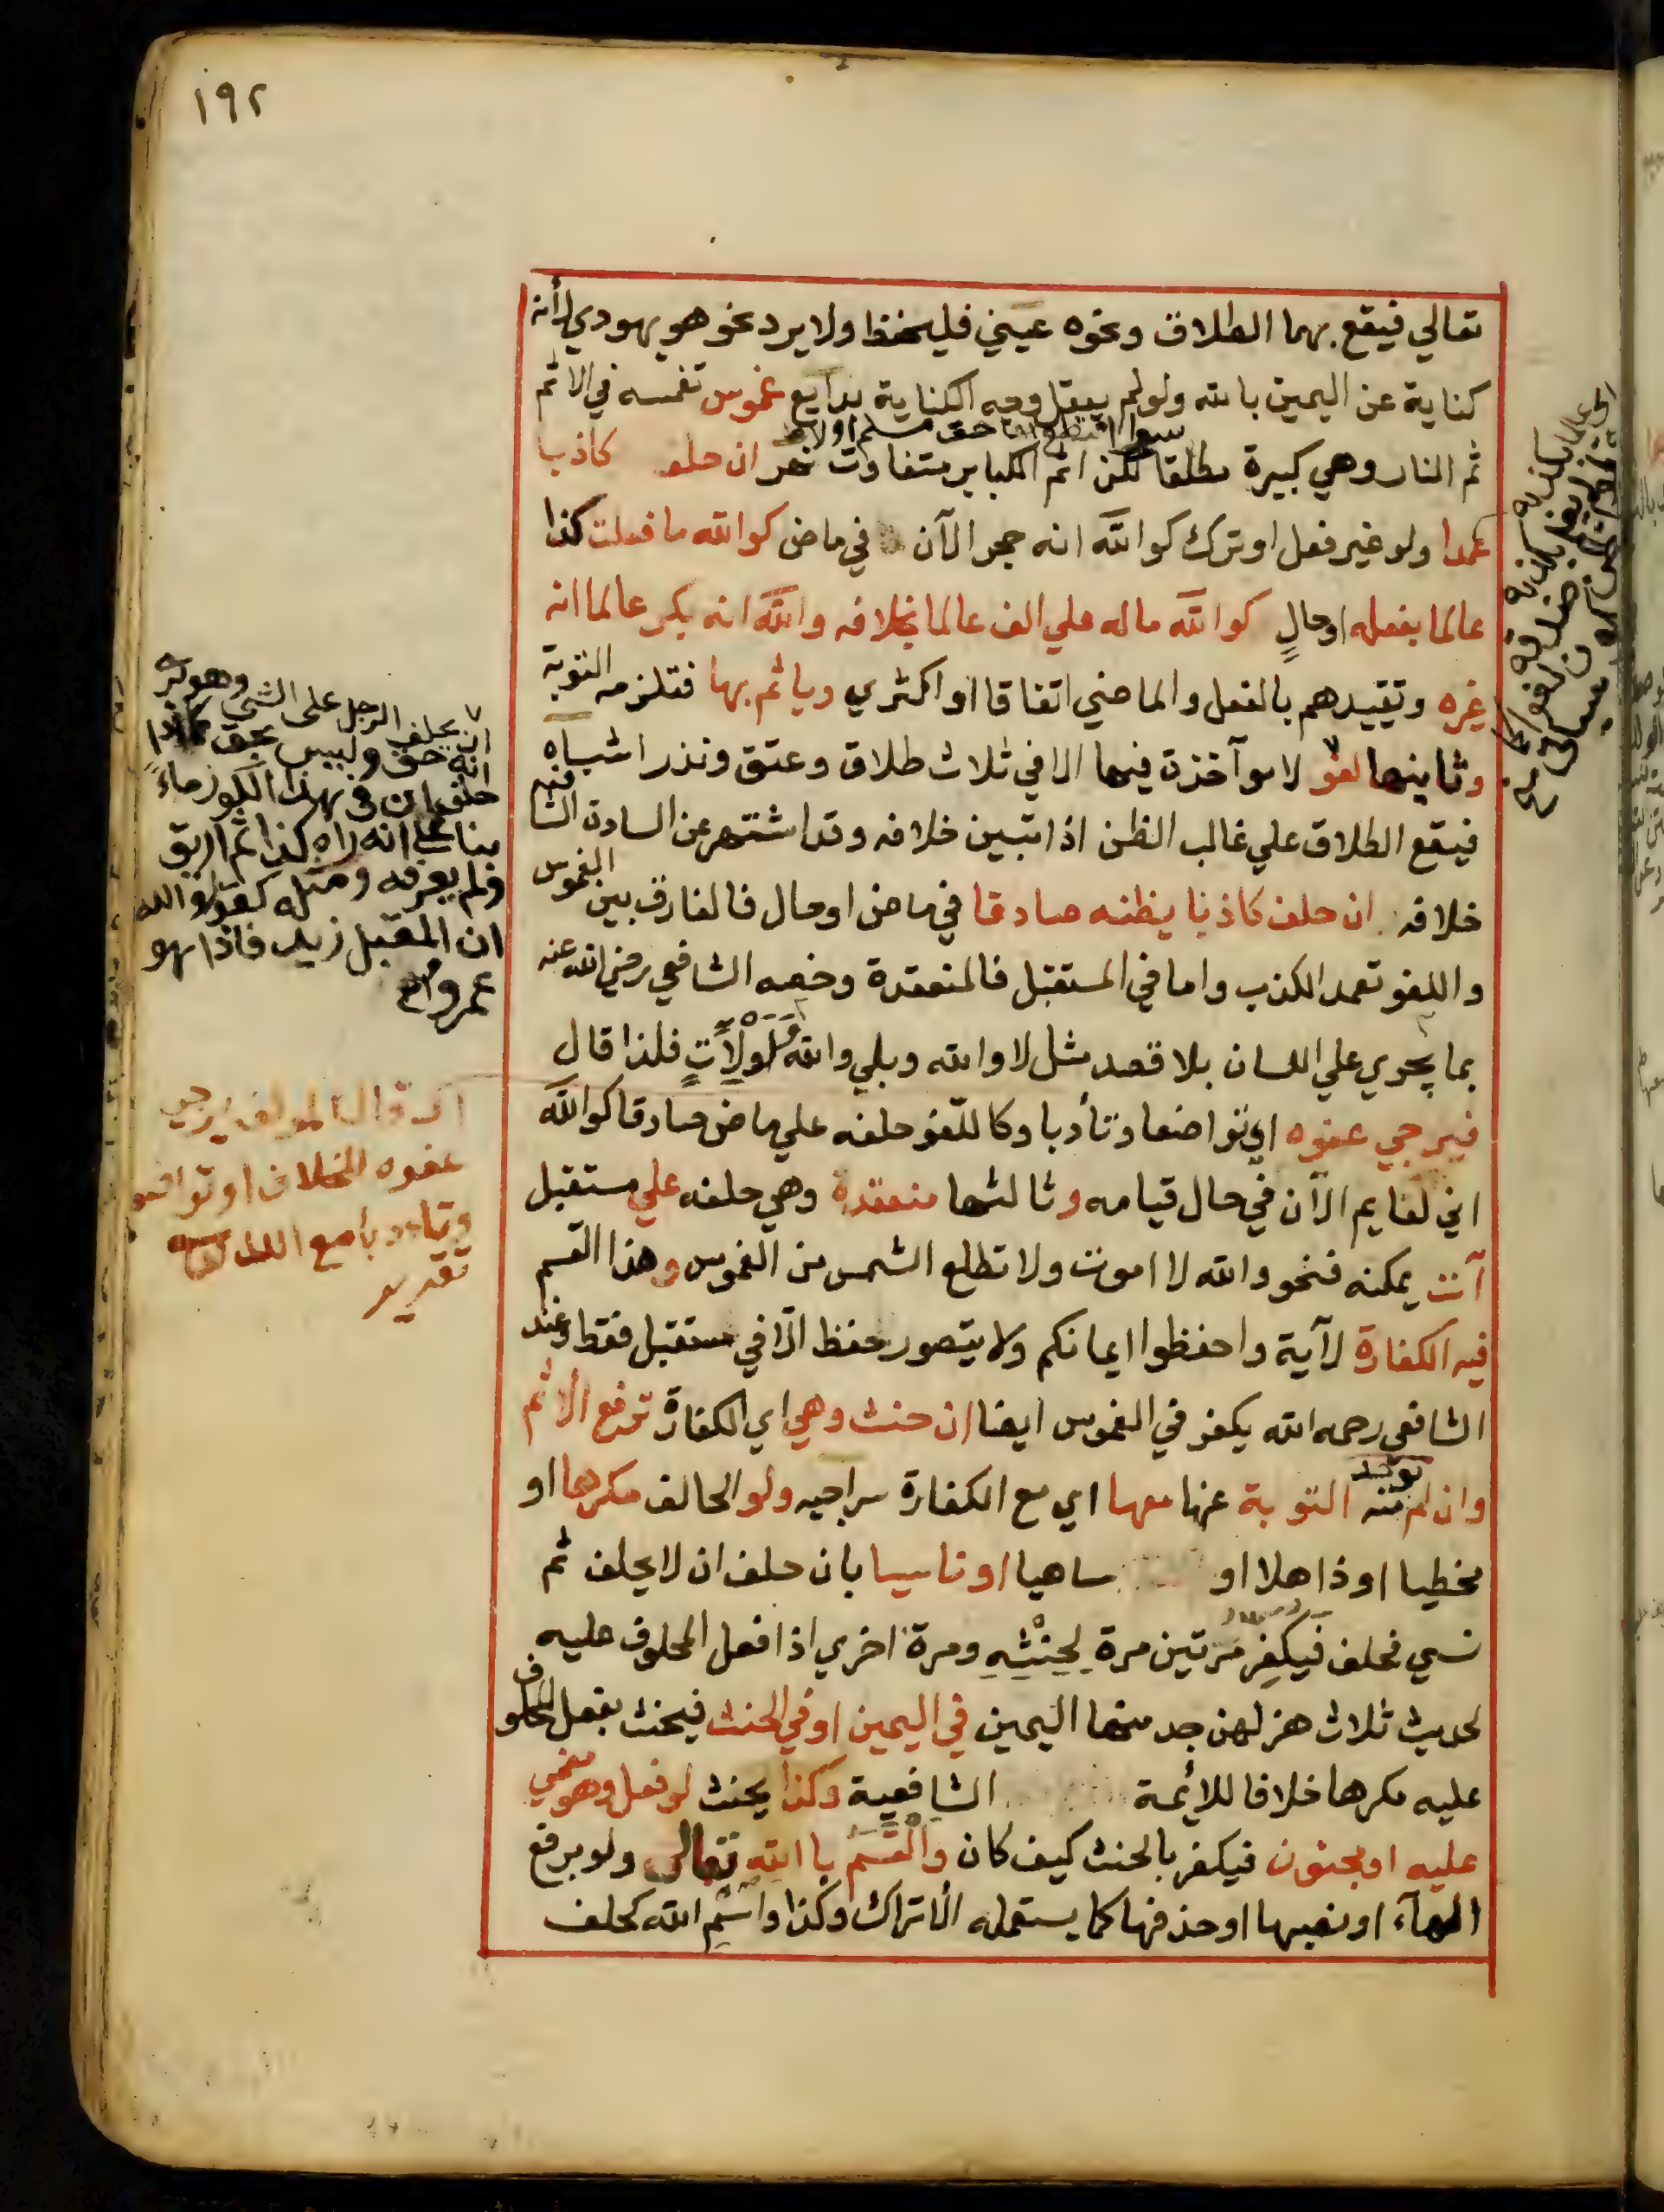 ١٩٢
تعالي فيقع بهما الطلاق ونحوه عيني فليحفظ ولا يرد نحو هو يهودي لأنه
كناية عن اليمين بالله ولو لم يعقل وجه الكناية بدايع غموس تغمسه في الاثم
سوا اقتطع بها حق مسلم او لا
ثم النار وهي كبيرة مطلقا لكن اثم الكباير متفاوت نهر ان حلف كاذبا
عمدا ولو غير فعل او ترك كوالله انه حجر الآن في ماض كوالله ما فعلت كذا
عالما بفعله او حالٍ كوالله ماله علي الف عالما بخلافه والله انه بكر عالما انه
غيره وتقييدهم بالفعل والماضي اتفاقا او اكثري وياثم بها فتلزمه التوبة
وثانيها لغو لا موآخذة فيها الا في ثلاث طلاق وعتق ونذر اشباه
فيقع الطلاق علي غالب الظن اذا تبين خلافه وقد اشتهر عن السادة الشافعية
خلافه ان حلف كاذبا يظنه صادقا في ماض او حال فالفارق بين الغموس
واللغو تعمد الكذب واما في المستقبل فالمنعقدة وخصه الشافعي رضي الله عنه
بما يجري علي اللسان بلا قصد مثل لا والله وبلي والله ولو لآتٍ فلذا قال
فيرجي عفوه اي تواضعا وتأدبا وكاللغو حلفه علي ماض صادقا كوالله
اني لقايم الآن في حال قيامه وثالثها منعقدة وهي حلفه علي مستقبل
آت يمكنه فنحو والله لا اموت ولا تطلع الشمس من الغموس وهذا القسم
فيه الكفارة لآية واحفظوا ايمانكم ولا يتصور حفظ الا في مستقبل فقط وعند
الشافعي رحمه الله يكفر في الغموس ايضا ان حنث وهي اي الكفارة ترفع الاثم
وان لم توجد منه التوبة عنها معها اي مع الكفارة سراجيه ولو الحالف مكرها او
مخطيا او ذاهلا او ساهيا او ناسيا بان حلف ان لا يحلف ثم
نسي فحلف فيكفر مرتين مرة لحنثه ومرة اخري اذا فعل المحلوف عليه
لحديث ثلاث هزلهن جد منها اليمين في اليمين او في الحنث فيحنث بفعل المحلوف
عليه مكرها خلافا للائمة الشافعية وكذا يحنث لو فعله وهو مغمي
عليه او مجنون فيكفر بالحنث كيف كان والقسم باالله تعالى ولو برفع
الهآء او نصبها او حذفها كما يستعمله الاتراك وكذا واسم الله كحلف
٧ ان يحلف الرجل على الشي وهو يرى
انه حق وليس بحق كما اذا
حلف ان في هذا الكوز ماءً
بناءً على انه راه كذا ثم اريق
ولم يعرفه ومثله كقوله والله
ان المقبل زيد فاذا هو
عمرو
قال المولف يرجي
عفوه الخلاف او تواضعا
وتادبا مع الله
تقدير